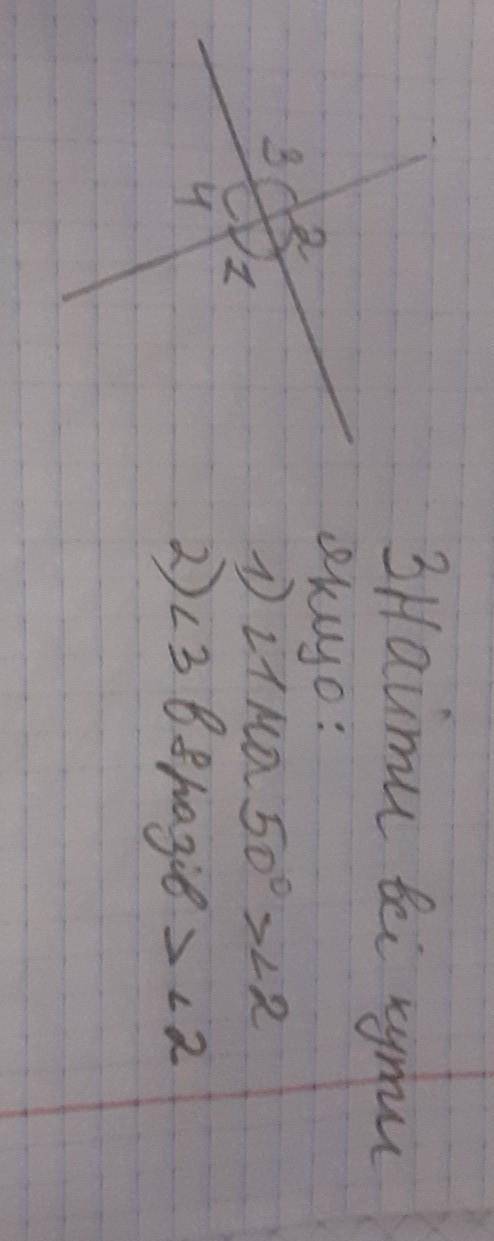 3
2
4
1
Знайти всі кути
якщо:
1) ∠1 на 50° > ∠2
2) ∠3 в 8 разів > ∠2